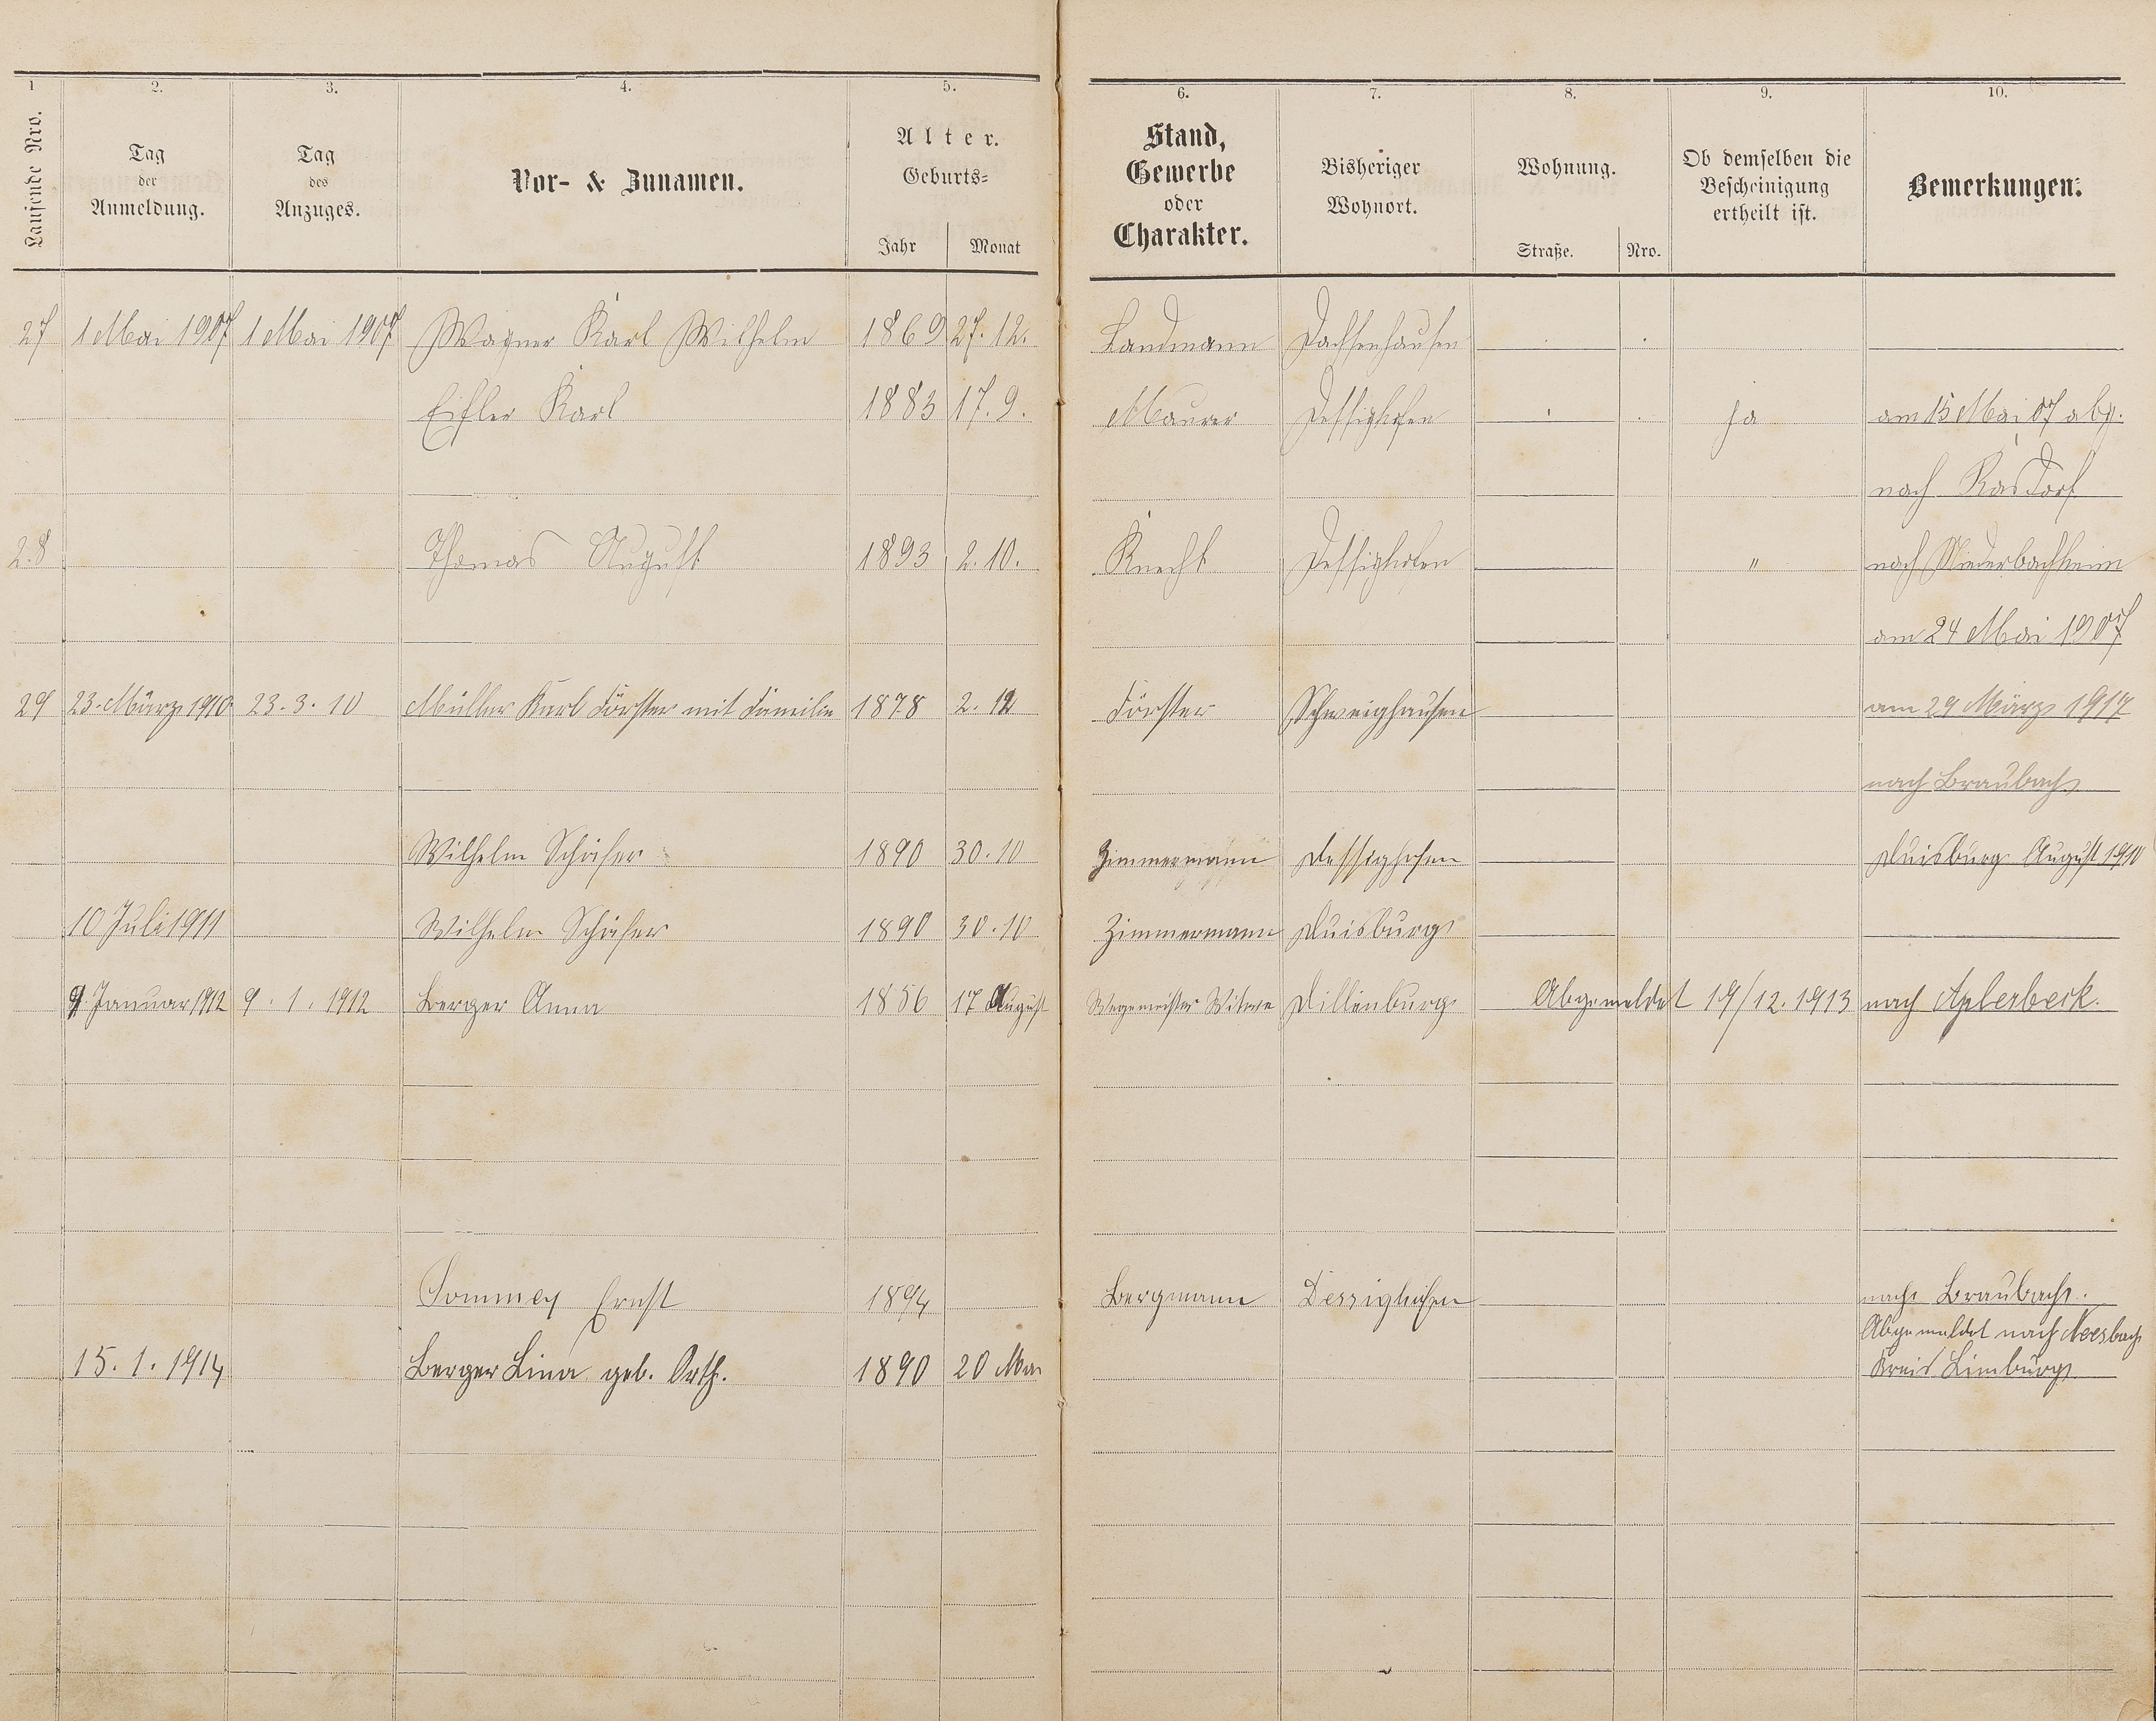 1 2. 3. 4. 5. 6. 7. 8. 9. 10.
Laufende Nro.
Tag der Anmeldung.
Tag des Anzuges.
Vor- & Zunamen.
Alter.
Geburts-
Jahr Monat
Stand, Gewerbe oder Charakter.
Bisheriger Wohnort.
Wohnung.
Straße. Nro.
Ob demselben die Bescheinigung ertheilt ist.
Bemerkungen.
27 1 Mai 1907 1 Mai 1907 Wagner Karl Wilhelm 1869 27.12. Landmann Dachsenhausen
Eifler Karl 1883 17.9. Maurer Dessighofen ja am 15 Mai 07 abg.
nach Kasdorf
28 Thomas August 1893 2.10. Knecht Dessighofen " nach Niederbachheim
am 24 Mai 1907
29 23. März 1910 23.3.10 Müller Karl Förster mit Familie 1878 2. Förster Schweighausen am 29 März 1917
nach Braubach
Wilhelm Schäfer 1890 30.10 Zimmermann Dessighofen Duisburg August 1910
10 Juli 1911 Wilhelm Schäfer 1890 30.10 Zimmermann Duisburg
9. Januar 1912 9.1.1912 Berger Anna 1856 17 August Wegemeister Witwe Dillenburg Abgemeldet 19/12.1913 nach Aplerbeck.
Ernst 1894 Bergmann Dessighofen nach Braubach.
Abgemeldet nach Neesbach
15.1.1914 Berger Lina geb. Orth. 1890 20 Mai Kreis Limburg